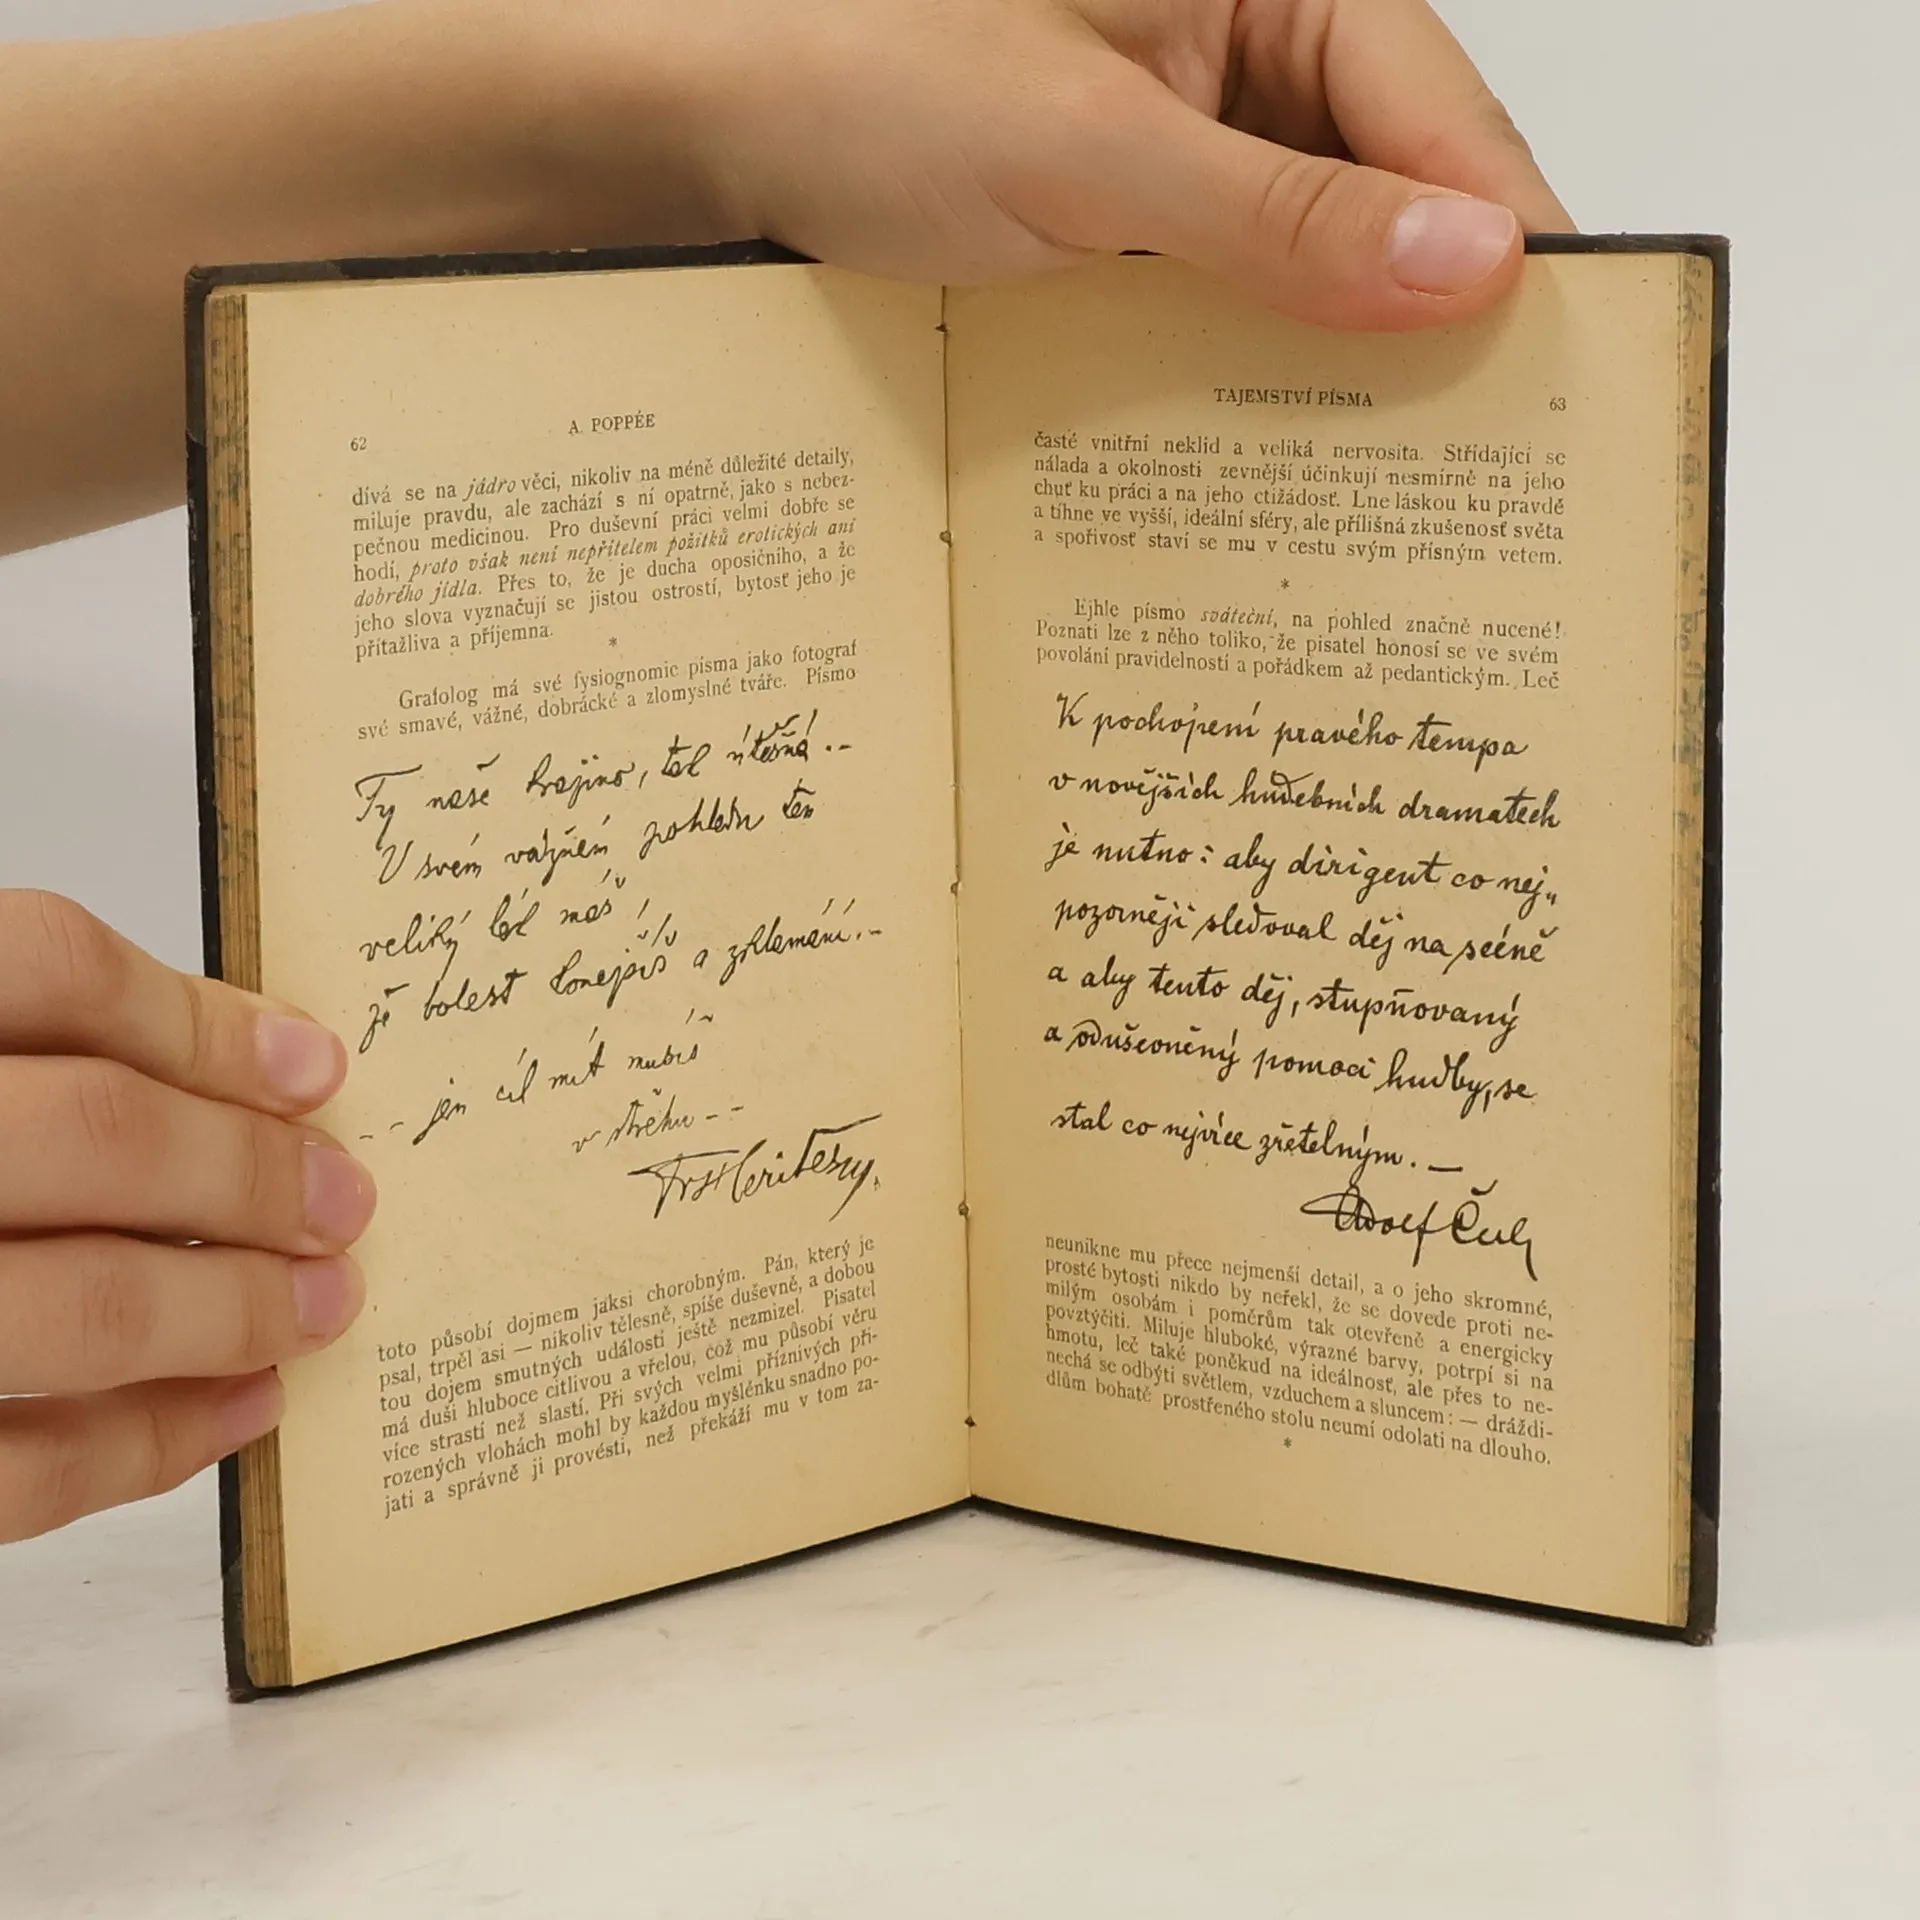 62
A. POPPÉE
dívá se na jádro věci, nikoliv na méně důležité detaily,
miluje pravdu, ale zachází s ní opatrně, jako s nebez-
pečnou medicinou. Pro duševní práci velmi dobře se
hodí, proto však není nepřítelem požitků erotických ani
dobrého jídla. Přes to, že je ducha oposičního, a že
jeho slova vyznačují se jistou ostrostí, bytosť jeho je
přitažliva a příjemna.
*
Grafolog má své fysiognomie písma jako fotograf
své smavé, vážné, dobrácké a zlomyslné tváře. Písmo
Ty naše krajino, tak útěšná! .–
V svém vážném pohledu ten
veliký lák máš,
že bolest konejšíš a zklamání.–
– – jen cíl mít
v – –
toto působí dojmem jaksi chorobným. Pán, který je
psal, trpěl asi — nikoliv tělesně, spíše duševně, a dobou
tou dojem smutných událostí ještě nezmizel. Pisatel
má duši hluboce citlivou a vřelou, což mu působí věru
více strastí než slastí. Při svých velmi příznivých při-
rozených vlohách mohl by každou myšlénku snadno po-
jati a správně ji provésti, než překáží mu v tom za-
TAJEMSTVÍ PÍSMA
63
časté vnitřní neklid a veliká nervosita. Střídající se
nálada a okolnosti zevnější účinkují nesmírně na jeho
chuť ku práci a na jeho ctižádosť. Lne láskou ku pravdě
a tíhne ve vyšší, ideální sféry, ale přílišná zkušenosť světa
a spořivosť staví se mu v cestu svým přísným vetem.
*
Ejhle písmo sváteční, na pohled značně nucené!
Poznati lze z něho toliko, že pisatel honosí se ve svém
povolání pravidelností a pořádkem až pedantickým. Leč
K pochopení pravého tempa
v novějších hudebních dramatech
je nutno: aby dirigent co nej„
pozorněji sledoval děj na scéně
a aby tento děj, stupňovaný
a oduševněný pomocí hudby, se
stal co nejvíce zřetelným. —
Adolf Čech
neunikne mu přece nejmenší detail, a o jeho skromné,
prosté bytosti nikdo by neřekl, že se dovede proti ne-
milým osobám i poměrům tak otevřeně a energicky
povztýčiti. Miluje hluboké, výrazné barvy, potrpí si na
hmotu, leč také poněkud na ideálnosť, ale přes to ne-
nechá se odbýti světlem, vzduchem a sluncem: — dráždi-
dlům bohatě prostřeného stolu neumí odolati na dlouho.
*